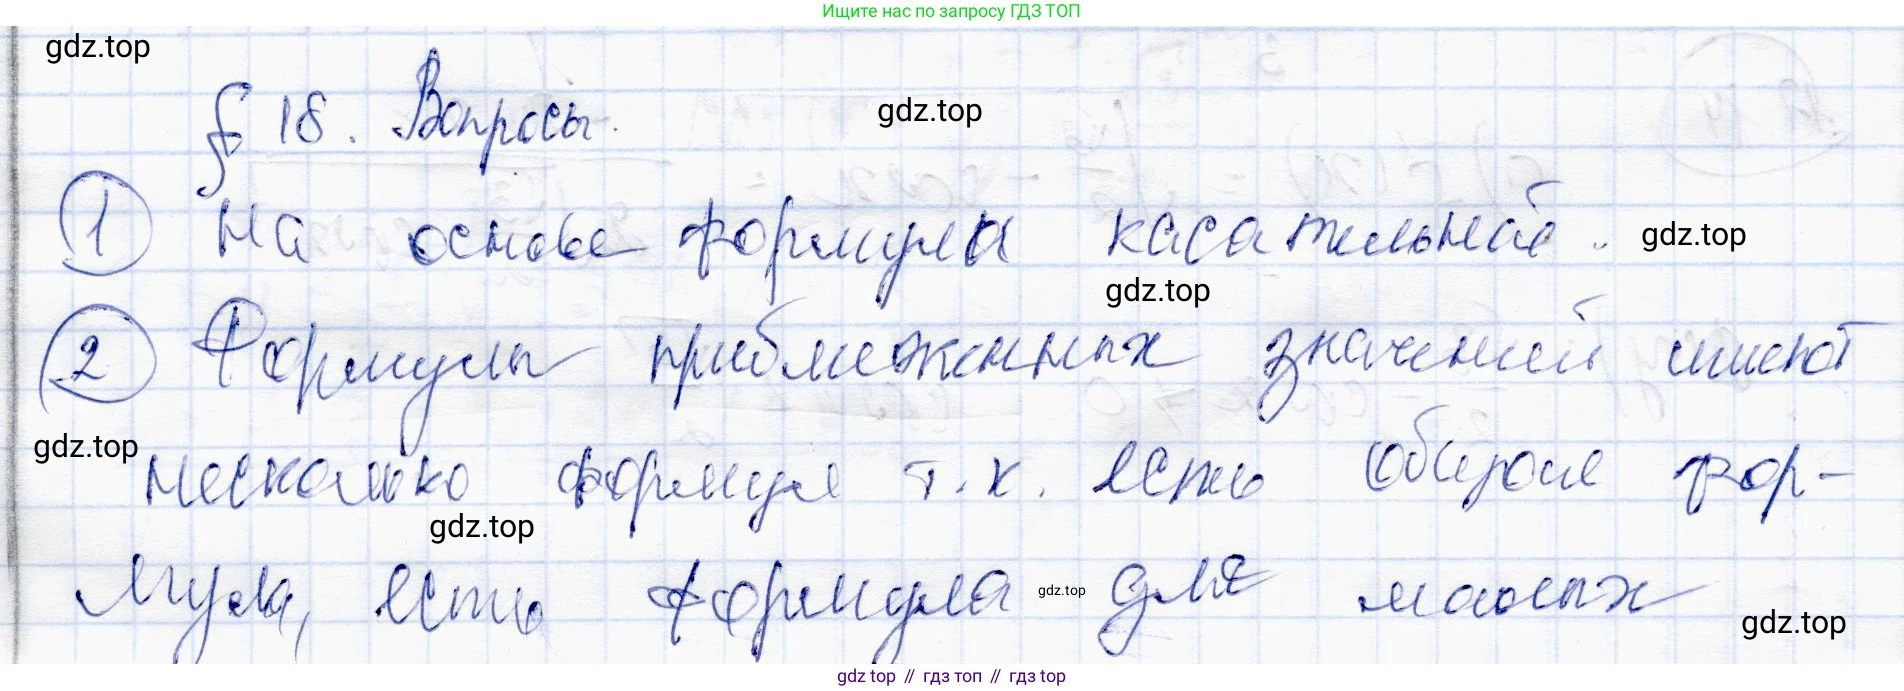 Ищите нас по запросу ГДЗ ТОП
gdz.top
§ 18. Вопросы.
gdz.top
① На основе формулы касательной.
gdz.top
gdz.top
② Формулы приближенных значений имеют
gdz.top
несколько формул т.к. есть общая фор-
gdz.top
мула, есть формула для малых
gdz.top
gdz.top
gdz.top // гдз топ // гдз top